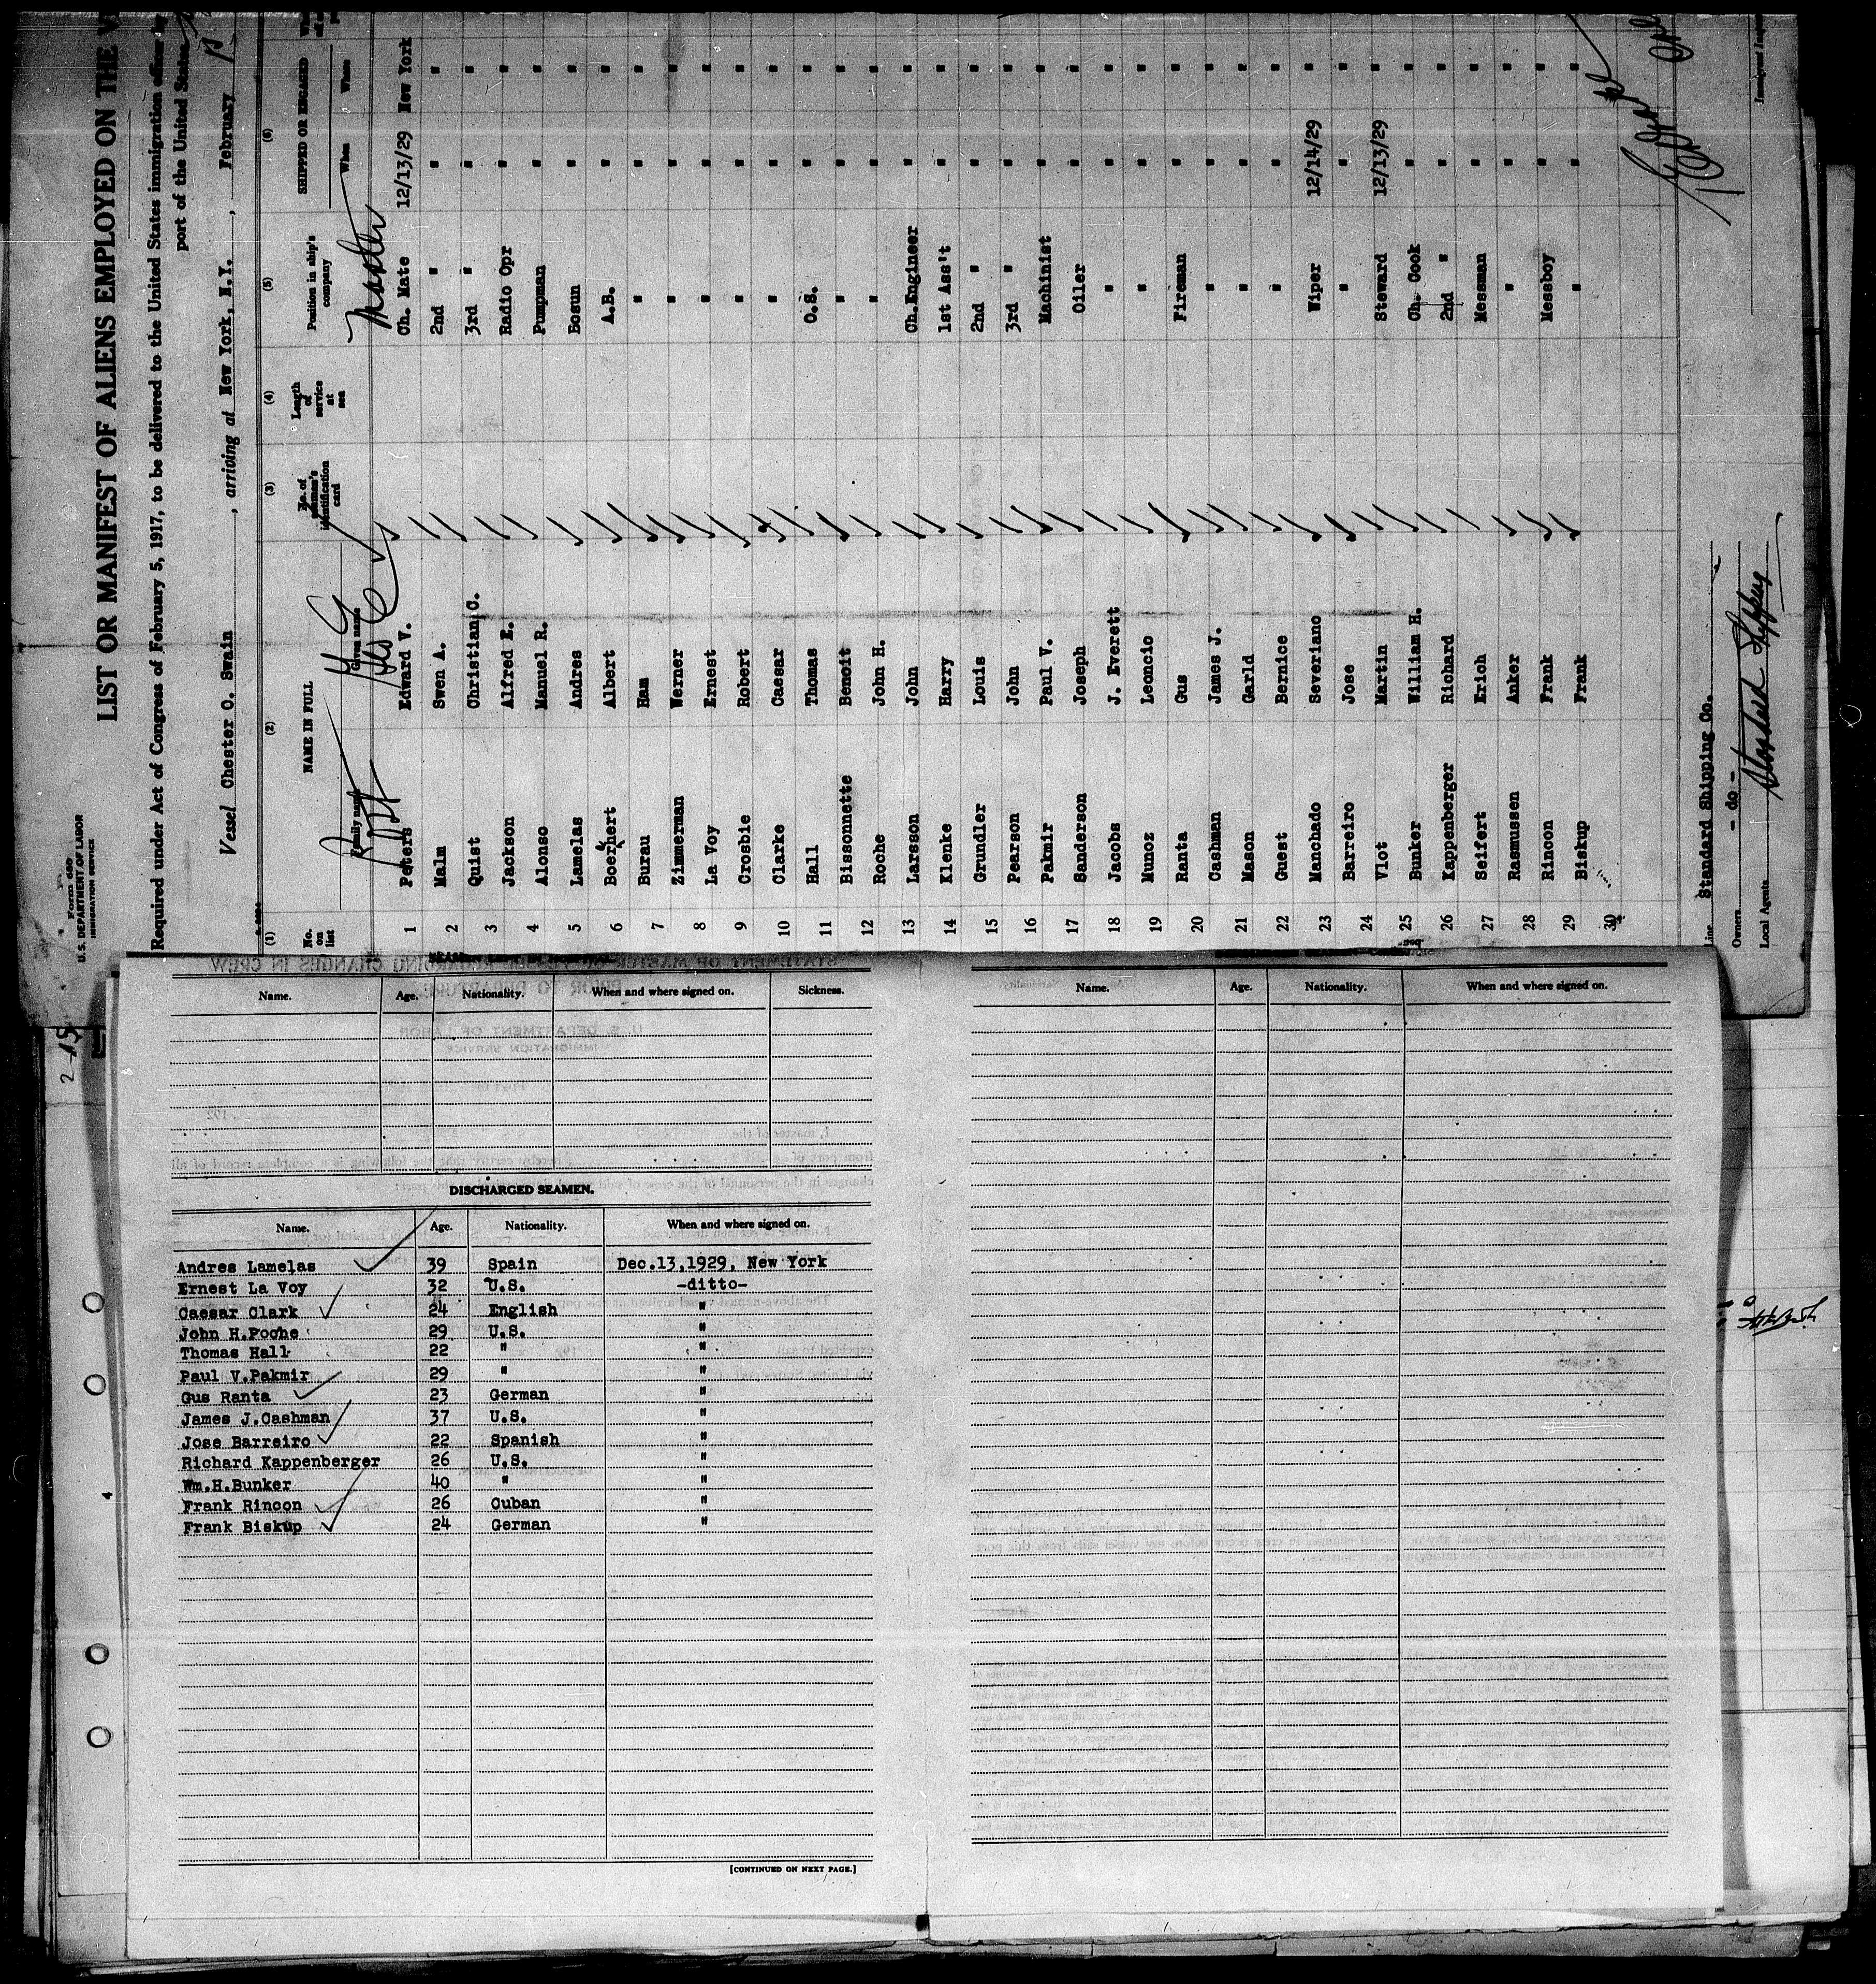 Form 680
U.S. DEPARTMENT OF LABOR
IMMIGRATION SERVICE
LIST OR MANIFEST OF ALIENS EMPLOYED ON THE
Required under Act of Congress of February 5, 1917, to be delivered to the United States immigration officer
port of the United States
Vessel Chester O. Swain, arriving at New York, N.Y., February
(1) (2) (3) (4) (5) (6)
No. on list NAME IN FULL No. of seaman's identification card Length of service at sea Position in ship's company SHIPPED OR ENGAGED
Family name Given name When Where
Master
Peters Edward V. Ch. Mate 12/13/29 New York
1 Malm Swen A. 2nd " " "
2 Quist Christian C. 3rd " " "
3 Jackson Alfred E. Radio Opr " "
4 Alonso Manuel R. Pumpman " "
5 Lamelas Andres Bosun " "
6 Boernert Albert A.B. " "
7 Burau Ham " " "
Zimmerman Werner " " "
8 La Voy Ernest " " "
9 Crosbie Robert " " "
10 Clarke Caesar " " "
11 Hall Thomas O.S. " "
12 Bissonnette Benoit " " "
Roche John H. " " "
13 Larsson John Ch. Engineer " "
14 Klenke Harry 1st Ass't " "
15 Grundler Louis 2nd " " "
16 Pearson John 3rd " " "
Pakmir Paul V. Machinist " "
17 Sanderson Joseph Oiler " "
18 Jacobs J. Everett " " "
19 Munoz Leoncio " " "
20 Ranta Gus Fireman " "
Cashman James J. " " "
21 Mason Garld " " "
22 Guest Bernice " " "
23 Manchado Severiano Wiper 12/14/29 "
Barreiro Jose " " "
24 Vlot Martin Steward 12/13/29 "
25 Bunker William H. Ch. Cook " "
26 Kappenberger Richard 2nd " " "
27 Seifert Erich Messman " "
28 Rasmussen Anker " " "
Rincon Frank Messboy " "
29 Biskup Frank " " "
30
Line Standard Shipping Co.
Owners - do -
Local Agents Standard Shipping
2-15
Name. Age. Nationality. When and where signed on. Sickness.
DISCHARGED SEAMEN.
Name. Age. Nationality. When and where signed on.
Andres Lamelas 39 Spain Dec.13,1929, New York
Ernest La Voy 32 U.S. -ditto-
Caesar Clark 24 English "
John H.Poche 29 U.S. "
Thomas Hall 22 " "
Paul V.Pakmir 29 " "
Gus Ranta 23 German "
James J.Cashman 37 U.S. "
Jose Barreiro 22 Spanish "
Richard Kappenberger 26 U.S. "
Wm.H.Bunker 40 " "
Frank Rincon 26 Cuban "
Frank Biskup 24 German "
[CONTINUED ON NEXT PAGE.]
Name. Age. Nationality. When and where signed on.